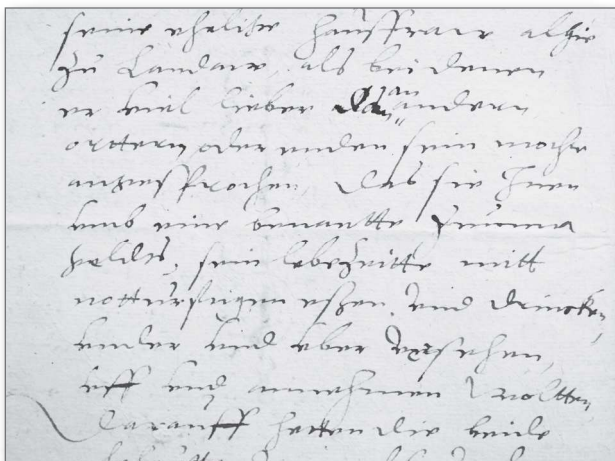 seine eheliche haussfraw alhie
zu Landaw, als bei denen
er viel lieber dan an andern
orttern oder enden sein mochte
angesprochen, das sie Inen
umb eine benantte Summa
geldts, sein lebezeitte mitt
notturfftigem essen, und drincken,
und uber versehen,
uff und annehmen woltten
Darauff hetten die beide